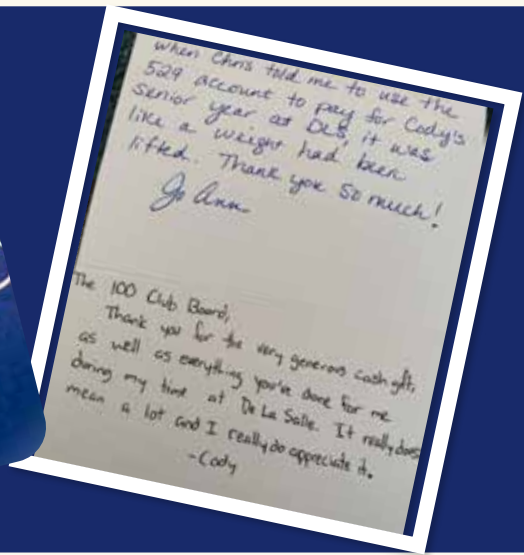 When Chris told me to use the
529 account to pay for Cody's
senior year at DLS, it was
like a weight had been
lifted. Thank you so much!
Jo Ann
The 100 Club Board,
Thank you for the very generous cash gift,
as well as everything you've done for me
during my time at De La Salle. It really does
mean a lot and I really do appreciate it.
-Cody